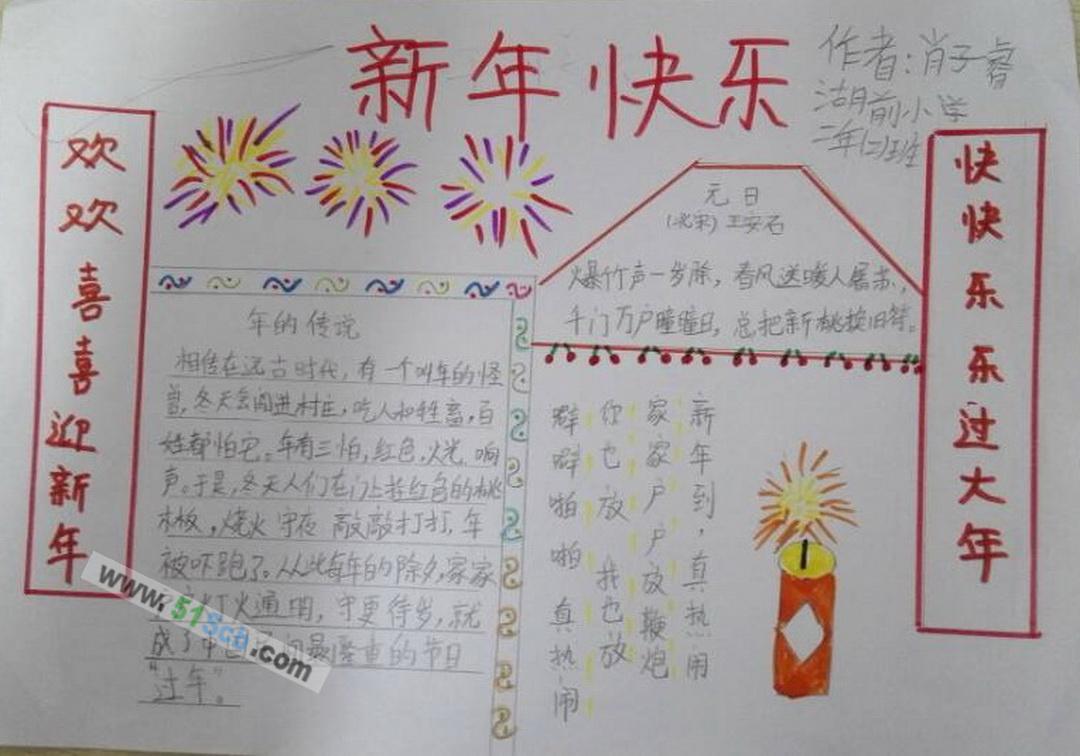 新年快乐
作者:肖子睿
湖前小学
二年(二)班
欢欢喜喜迎新年
快快乐乐过大年
元日
(北宋)王安石
爆竹声一岁除,春风送暖人屠苏,
千门万户曈曈日,总把新桃换旧符。
年的传说
相传在远古时代,有一个叫年的怪
兽,冬天会闯进村庄,吃人和牲畜,百
姓都怕它。年有三怕,红色,火光,响
声。于是,冬天人们在门上挂红色的桃
木板,烧火守夜敲敲打打,年
被吓跑了。从此每年的除夕,家家
户灯火通明,守更待岁,就
成了中国 间最隆重的节日
“过年”。
新年到,真热闹
家家户户放鞭炮
你也放我也放
噼噼啪啪真热闹
www.51Scb.com